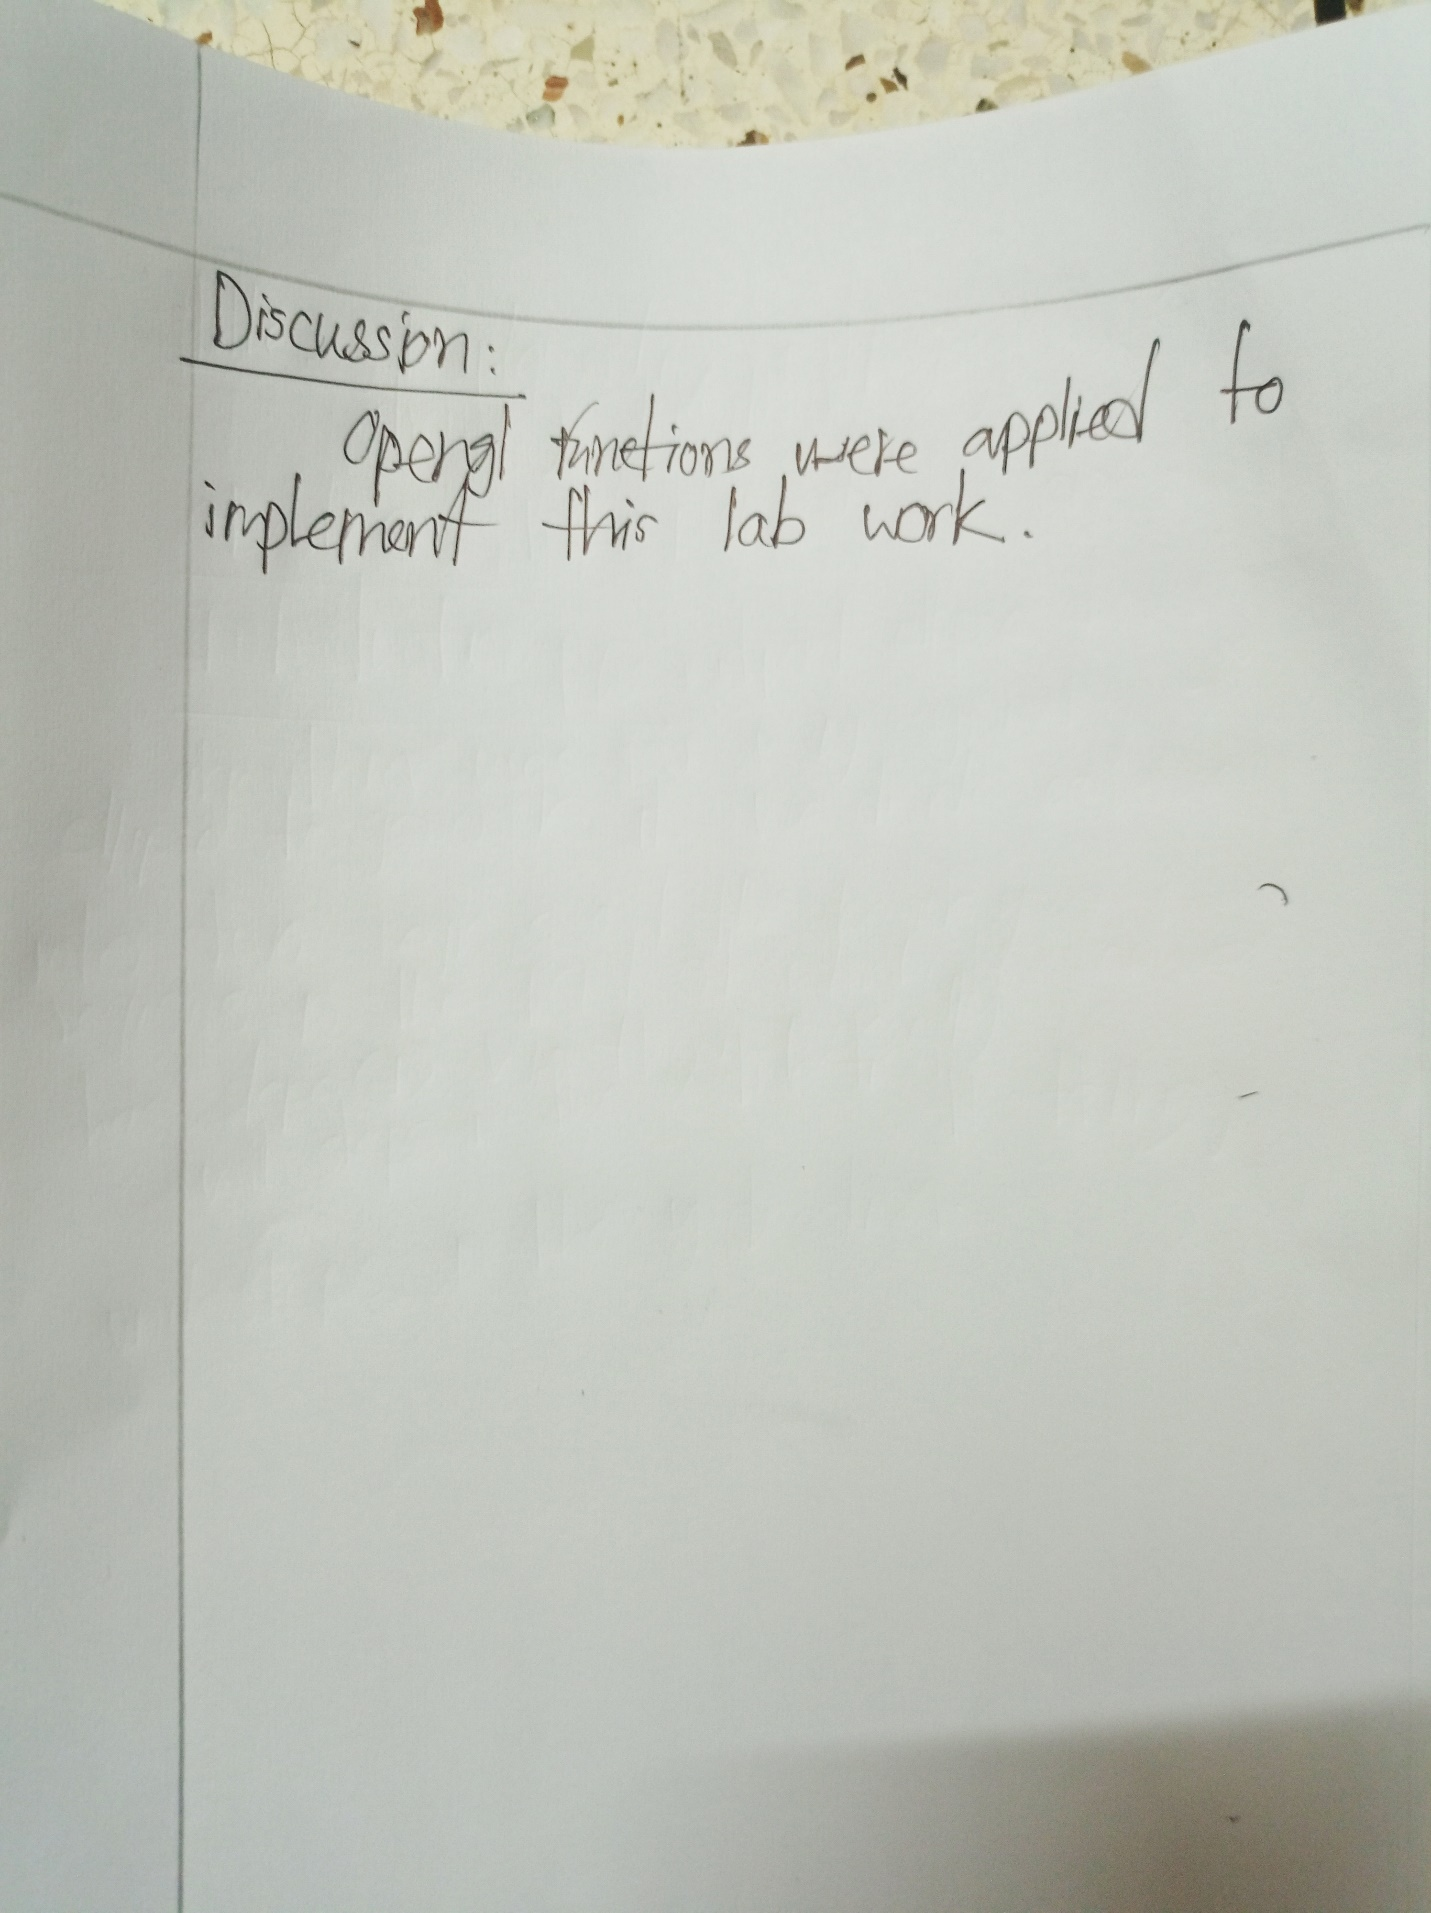 Discussion:
Opengl functions were applied to
implement this lab work.